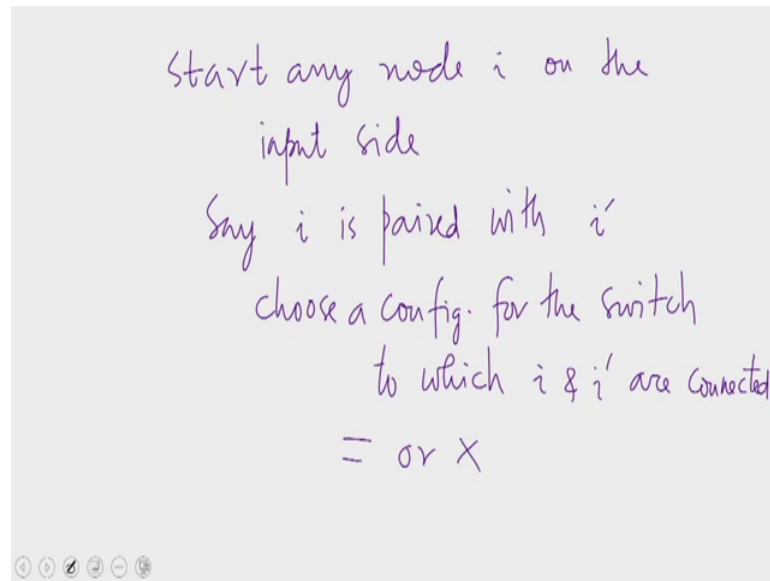 start any node i on the
input side
Say i is paired with i'
choose a config. for the switch
to which i & i' are connected
= or X